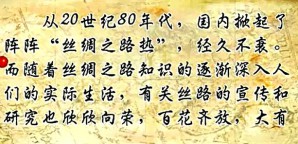 从20世纪80年代，国内掀起了
阵阵“丝绸之路热”，经久不衰。
而随着丝绸之路知识的逐渐深入人
们的实际生活，有关丝路的宣传和
研究也欣欣向荣，百花齐放，大有